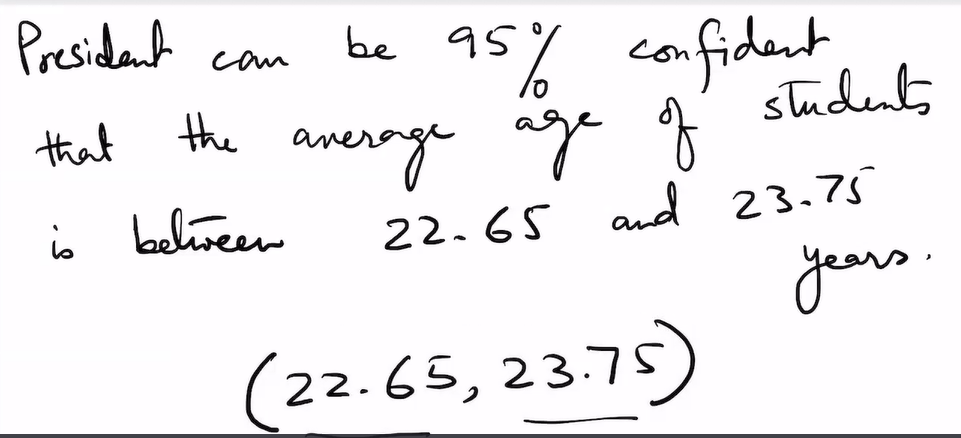 President can be 95% confident
that the average age of students
is between 22.65 and 23.75
years.
(22.65, 23.75)